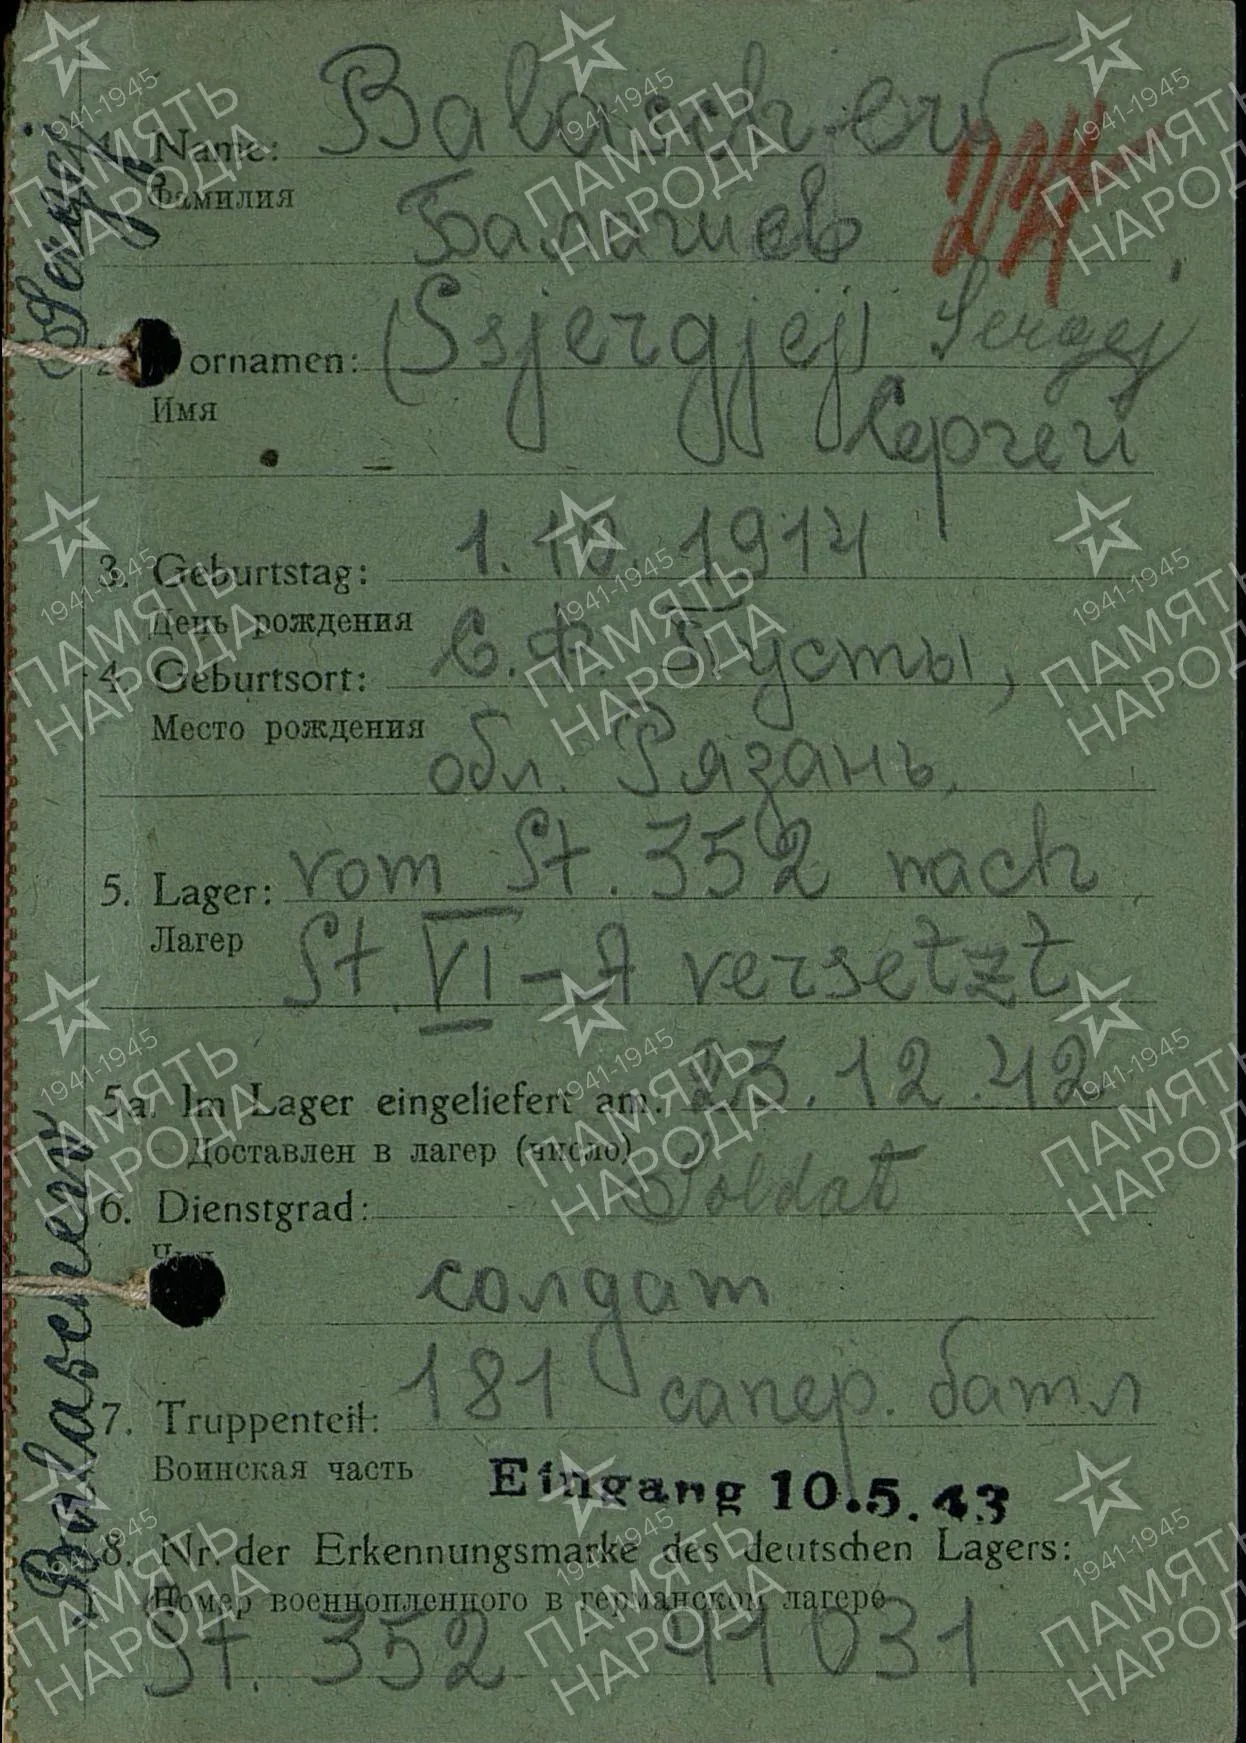 1. Name: Balaschew
Фамилия
Балашев
274
2. Vornamen: (Ssjergjej) Sergej
Имя
Сергей
3. Geburtstag: 1.10.1914
День рождения
4. Geburtsort: Пусты,
Место рождения
обл. Рязань.
5. Lager: vom St. 352 nach
Лагер
St. VI-A versetzt
5a. Im Lager eingeliefert am: 23.12.42
Доставлен в лагер (число)
6. Dienstgrad: Soldat
Чин
солдат
7. Truppenteil: 181 сапер. батл
Воинская часть
Eingang 10.5.43
8. Nr. der Erkennungsmarke des deutschen Lagers:
Номер военнопленного в германском лагере
St. 352 41031
Balaschew
Sergej
1941-1945
ПАМЯТЬ
НАРОДА